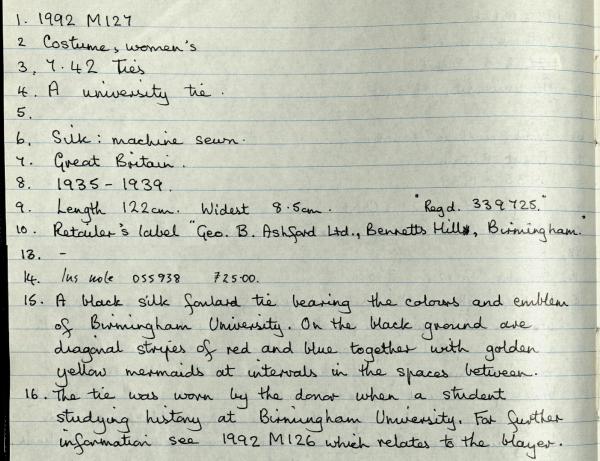 1. 1992 M127
2 Costume, women's
3, 7.42 Ties
4. A university tie.
5.
6, Silk: machine sewn.
7. Great Britain.
8. 1935-1939.
9. Length 122cm. Widest 8.5cm. "Regd. 339725."
10. Retailer's label "Geo. B. Ashford Ltd., Bennetts Hill, Birmingham."
13. -
14. Ins note 055938 725.00.
15. A black silk foulard tie bearing the colours and emblem
of Birmingham University. On the black ground are
diagonal stripes of red and blue together with golden
yellow mermaids at intervals in the spaces between.
16. The tie was worn by the donor when a student
studying history at Birmingham University. For further
information see 1992 M126 which relates to the blazer.